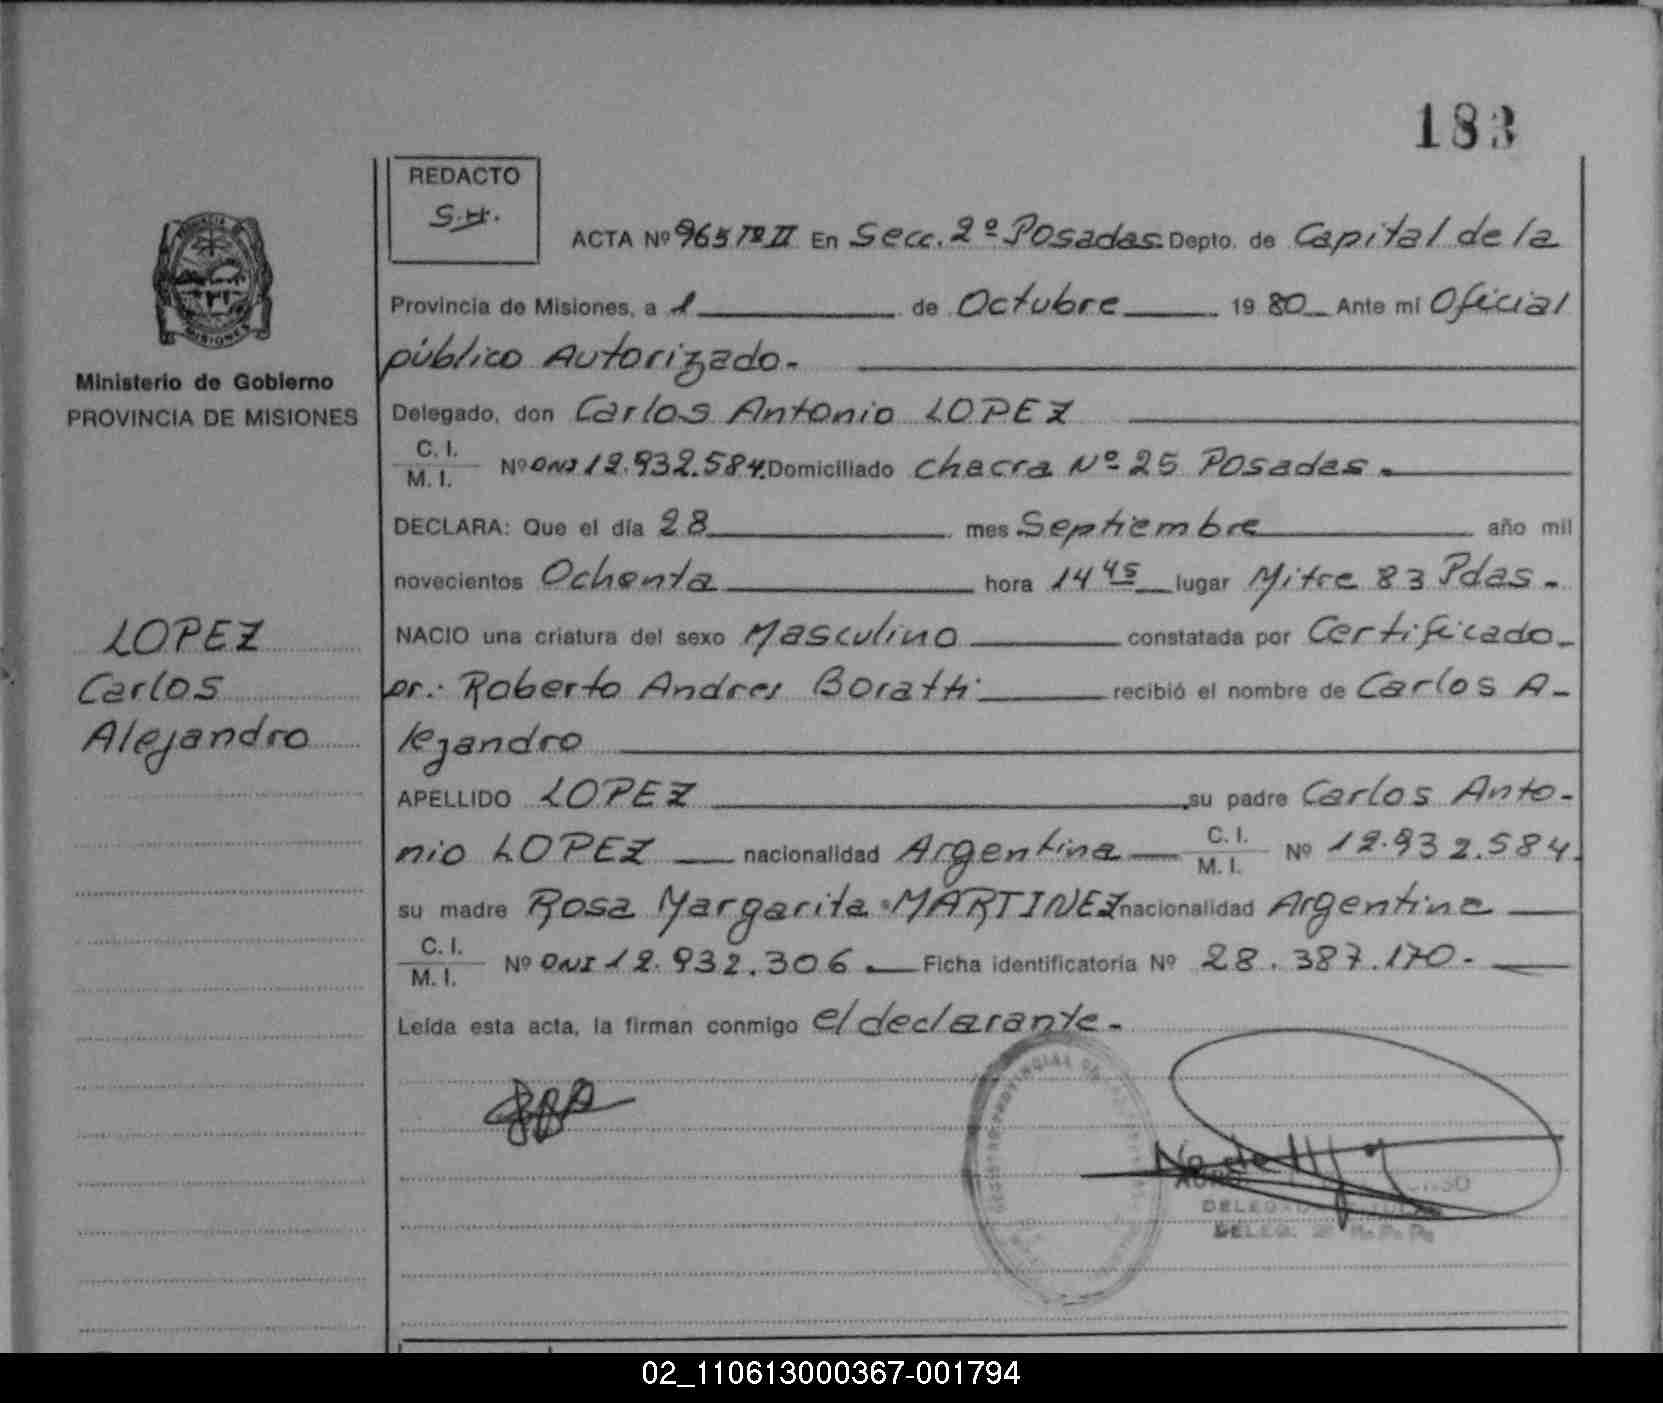 183
REDACTO
S.H.
ACTA Nº 965 Tº II En Secc. 2º Posadas. Depto. de Capital de la
Provincia de Misiones, a 1 de Octubre 1980 Ante mí Oficial
público Autorizado.
Ministerio de Gobierno
PROVINCIA DE MISIONES
Delegado, don Carlos Antonio LOPEZ
C. I.
M. I. Nº DNI 12.932.584. Domiciliado chacra Nº 25 Posadas.
DECLARA: Que el día 28 mes Septiembre año mil
novecientos Ochenta hora 14 45 lugar Mitre 83 Pdas.
LOPEZ
Carlos
Alejandro
NACIO una criatura del sexo Masculino constatada por Certificado
Dr.: Roberto Andres Boratti recibió el nombre de Carlos A-
lejandro
APELLIDO LOPEZ su padre Carlos Anto-
nio LOPEZ nacionalidad Argentina C. I. M. I. Nº 12.932.584.
su madre Rosa Margarita MARTINEZ nacionalidad Argentina
C. I.
M. I. Nº DNI 12.932.306 Ficha identificatoria Nº 28.387.170.
Leída esta acta, la firman conmigo el declarante.
DELEG. 2º R.P.P.
02_110613000367-001794